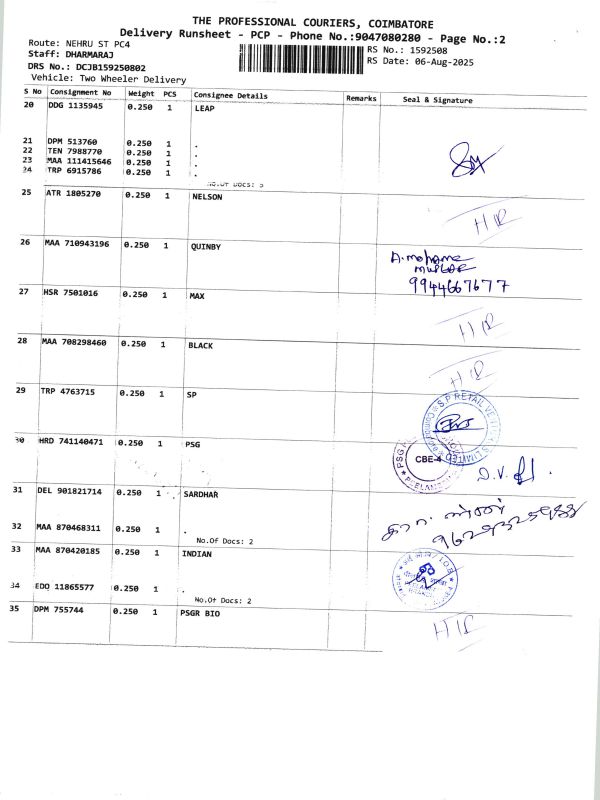 THE PROFESSIONAL COURIERS, COIMBATORE
Delivery Runsheet - PCP - Phone No.:9047080280 - Page No.:2
Route: NEHRU ST PC4
RS No.: 1592508
Staff: DHARMARAJ
RS Date: 06-Aug-2025
DRS No.: DCJB159250802
Vehicle: Two Wheeler Delivery
S No Consignment No Weight PCS Consignee Details Remarks Seal & Signature
20 DDG 1135945 0.250 1 LEAP
21 DPM 513760 0.250 1 .
22 TEN 7988770 0.250 1 .
23 MAA 111415646 0.250 1 .
24 TRP 6915786 0.250 1 .
No.Of Docs: 5
25 ATR 1805270 0.250 1 NELSON
26 MAA 710943196 0.250 1 QUINBY
A.mohame
9944667677
27 HSR 7501016 0.250 1 MAX
28 MAA 708298460 0.250 1 BLACK
29 TRP 4763715 0.250 1 SP
S.P RETAIL VE
LIMITED
30 HRD 741140471 0.250 1 PSG
PSG
CBE-4
31 DEL 901821714 0.250 1 SARDHAR
32 MAA 870468311 0.250 1 .
No.Of Docs: 2
33 MAA 870420185 0.250 1 INDIAN
34 EDO 11865577 0.250 1 .
No.Of Docs: 2
35 DPM 755744 0.250 1 PSGR BIO